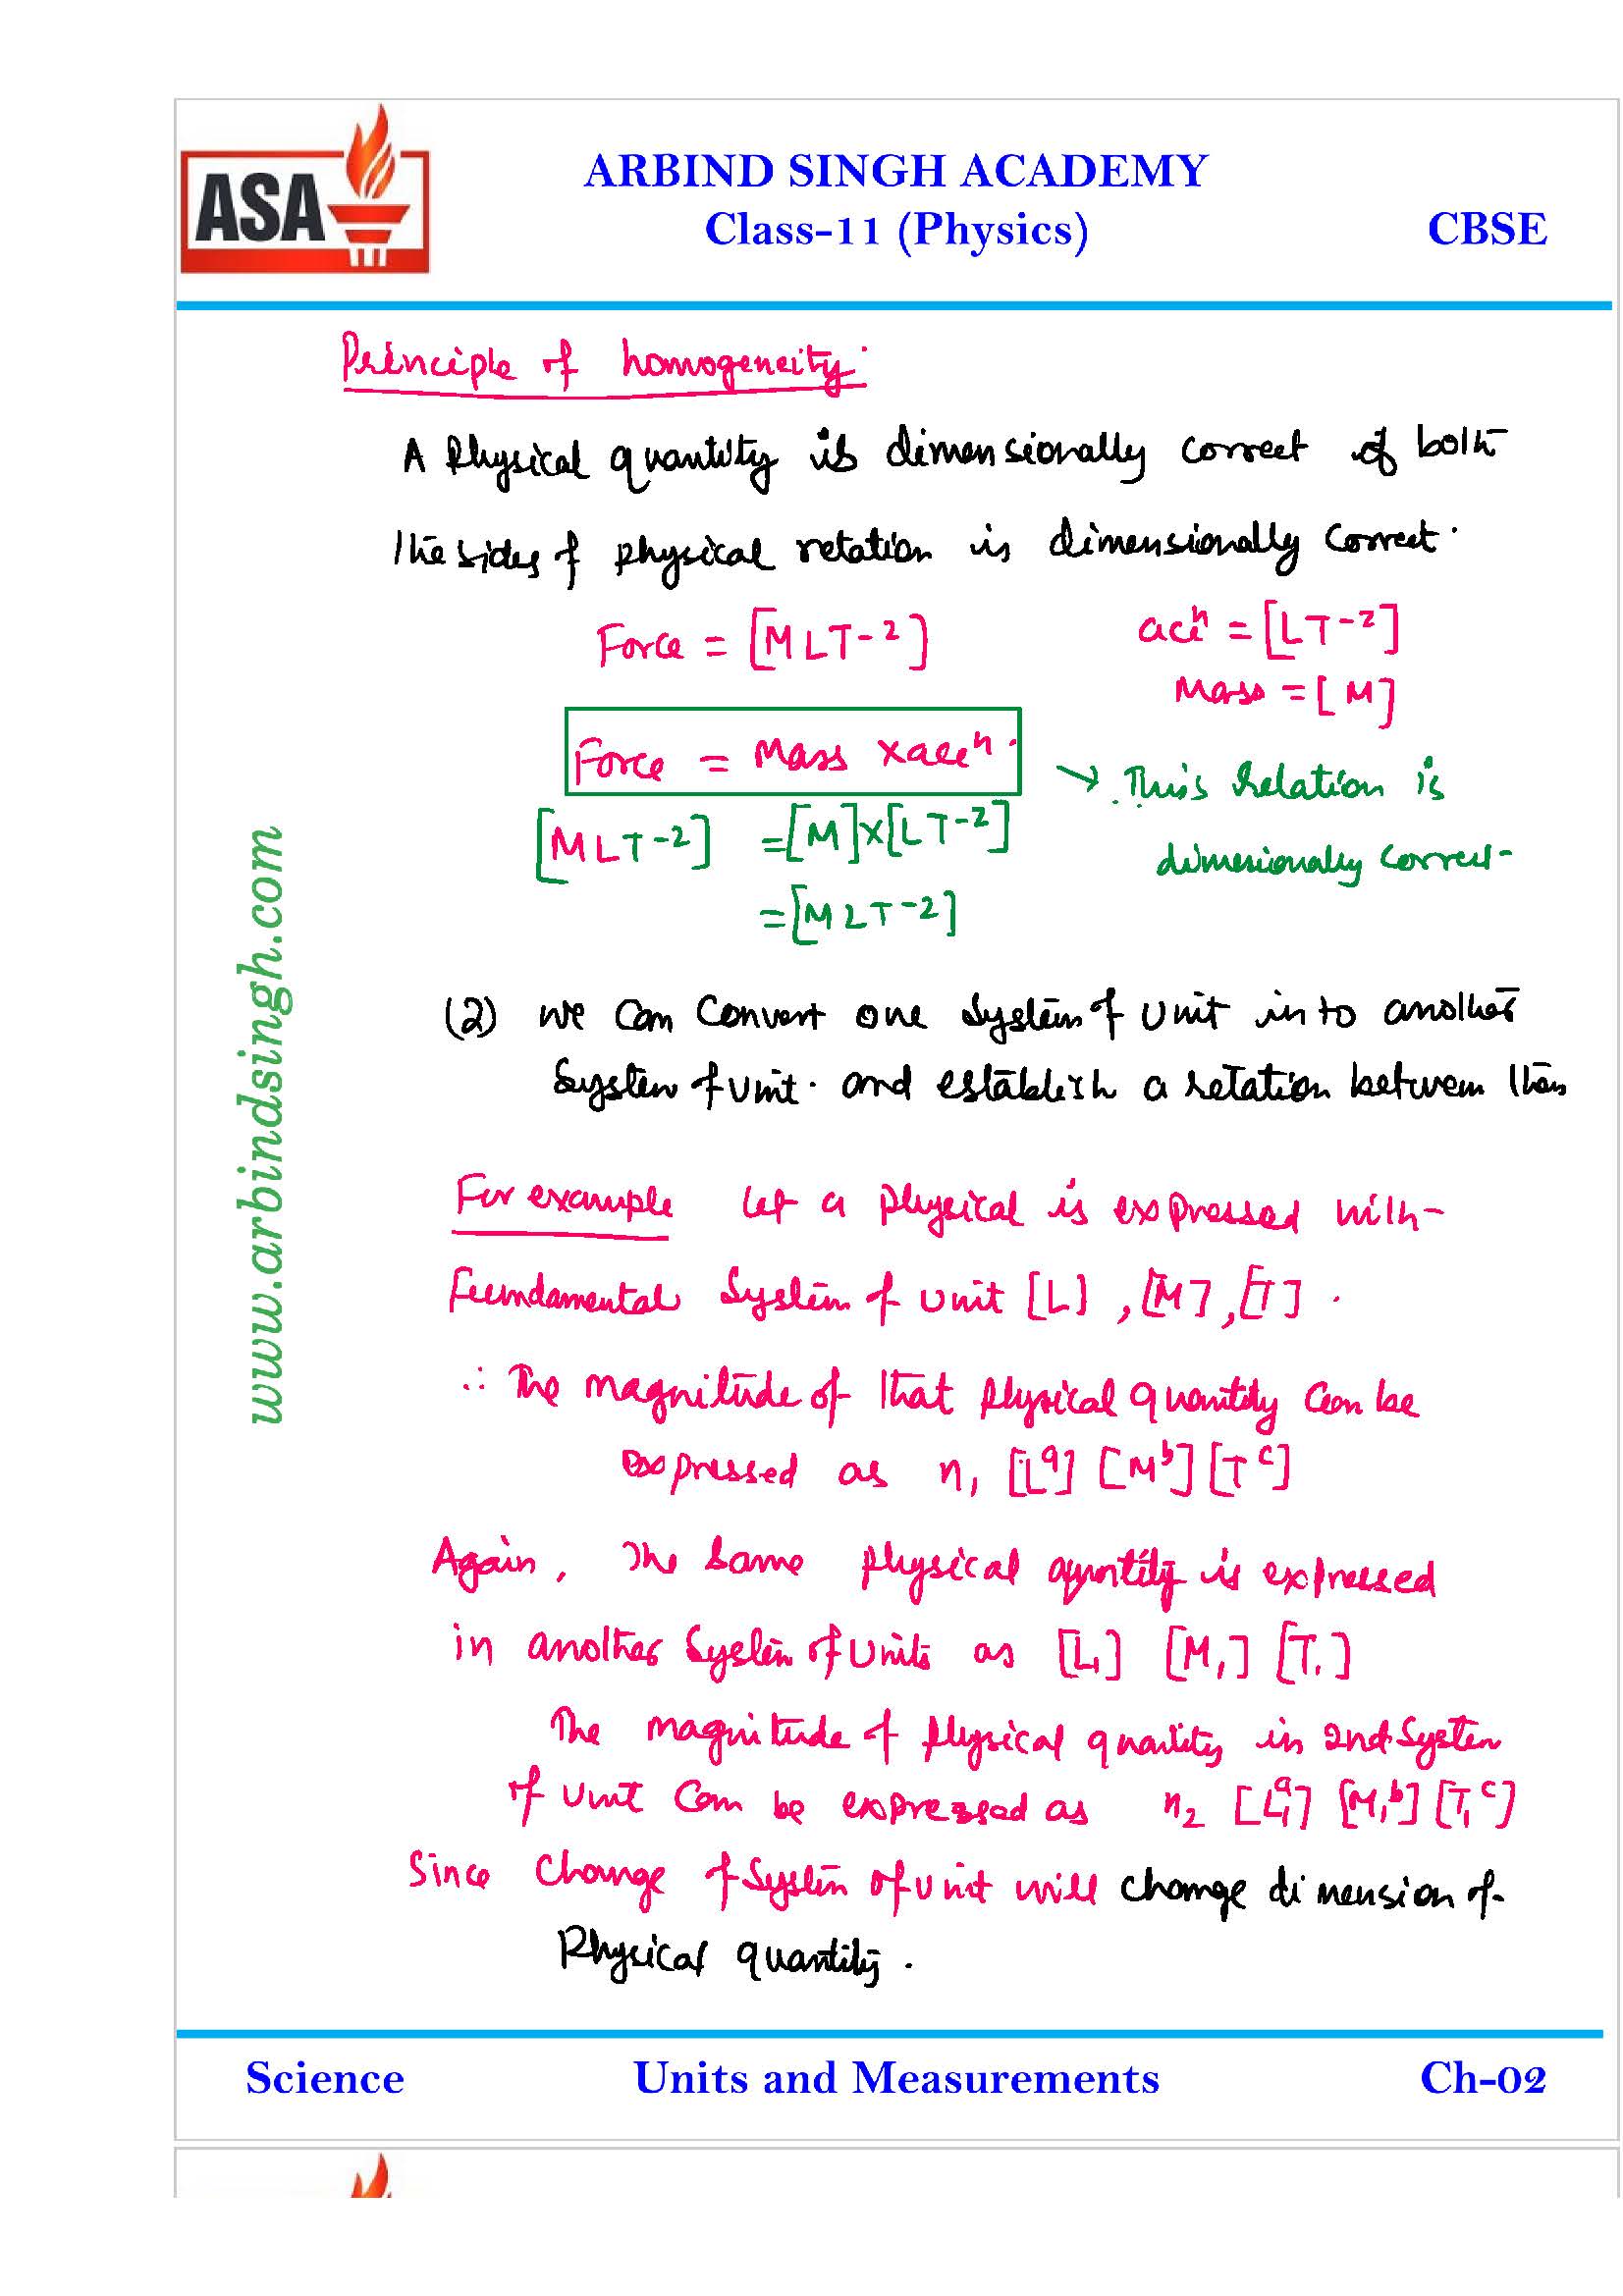 ASA
ARBIND SINGH ACADEMY
Class-11 (Physics)
CBSE
Principle of homogeneity.
A Physical quantity is dimensionally correct if both
the sides of physical relation is dimensionally correct.
Force = [MLT-2]
accn = [LT-2]
Mass = [M]
Force = Mass x accn.
→ This relation is
dimesionally correct-
[MLT-2] = [M]x[LT-2]
= [MLT-2]
(2) we can convert one system of unit into another
system of unit. and establish a relation between them
For example let a physical is expressed with
Feundamental system of unit [L], [M], [T].
∴ The magnitude of that physical quantity can be
expressed as n1 [L^a] [M^b] [T^c]
Again, the same physical quntity is expressed
in another system of units as [L1] [M1] [T1]
The magnitude of physical quantity in 2nd system
of unit can be expressed as n2 [L1^a] [M1^b] [T1^c]
Since change of system of unit will change dimension of
Physical quantity.
www.arbindsingh.com
Science
Units and Measurements
Ch-02